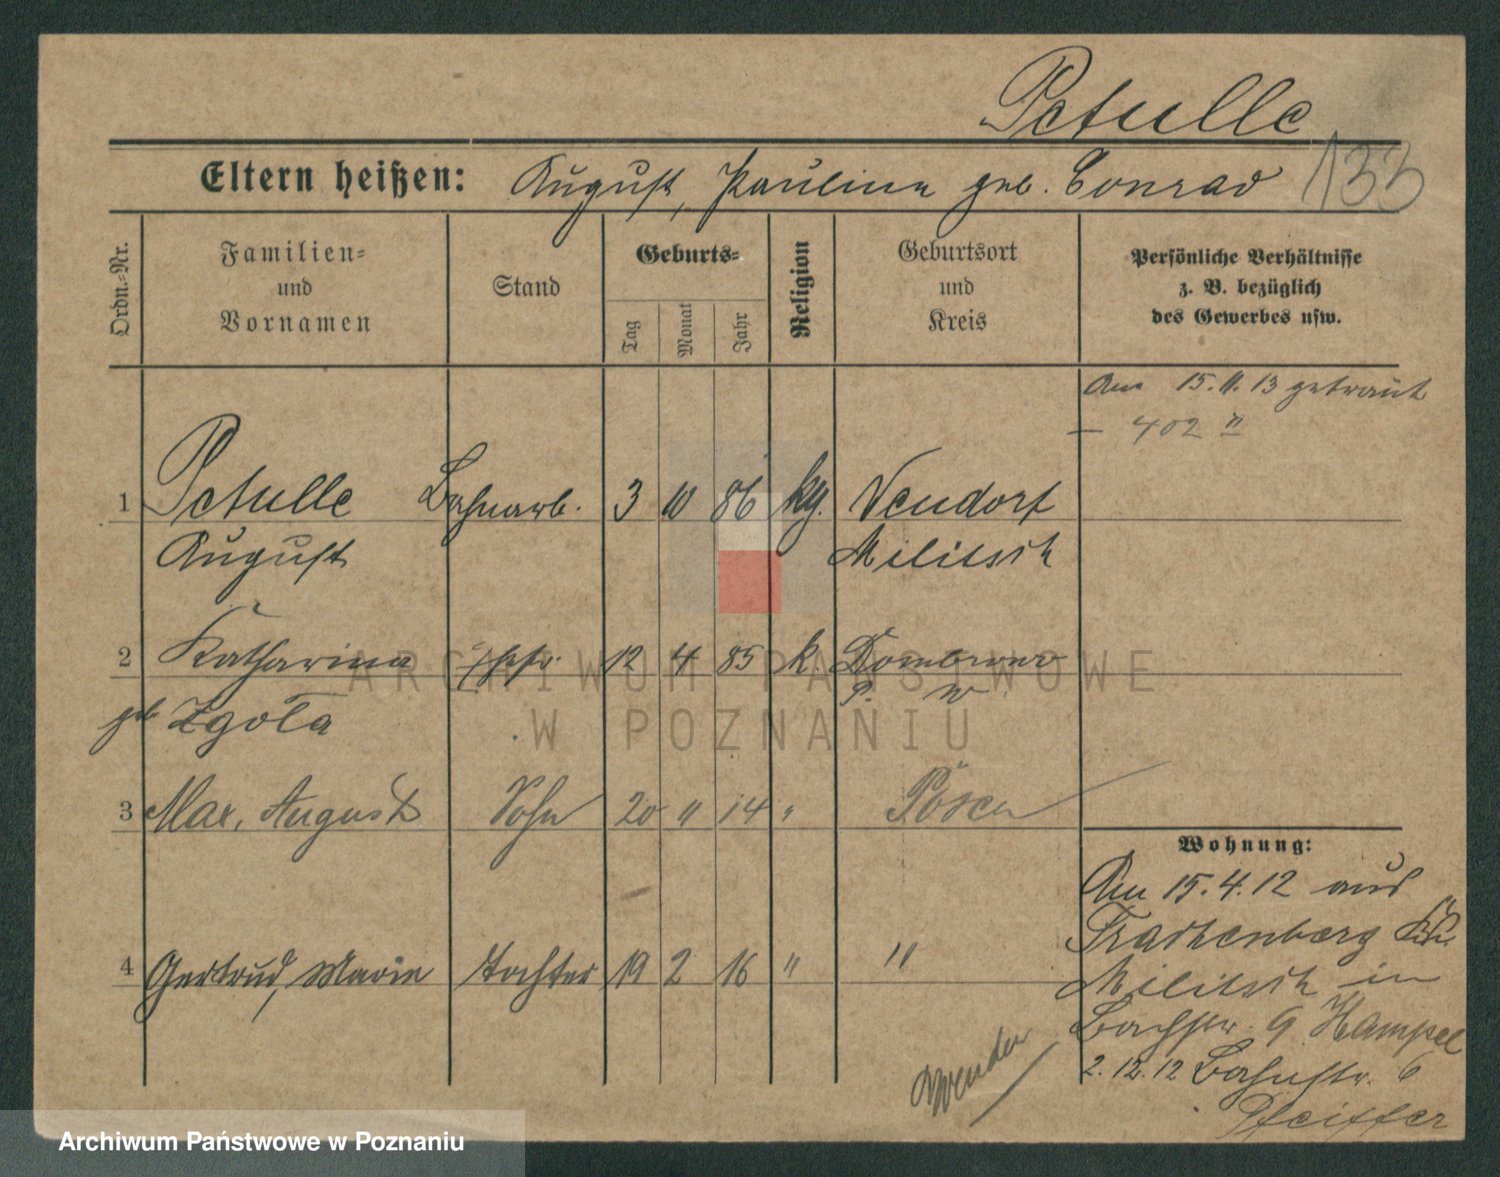 Petulle
133
Eltern heißen: August, Pauline geb. Conrad
Ordn.-Nr.
Familien- und Vornamen
Stand
Geburts-
Tag
Monat
Jahr
Religion
Geburtsort und Kreis
Persönliche Verhältnisse
z. B. bezüglich
des Gewerbes usw.
Am 15.11.13 getraut
402
1 Petulle Bahnarb. 3 10 86 kg. Neudorf
August Militsch
2 Katharina Ehefr. 12 4 85 k. Dombrowo
geb Zgoła P. W
3 Max, August Sohn 20 " 14 " Posen
4 Gertrud, Marie Tochter 19 2 16 " "
Wohnung:
Am 15.4.12 aus
Trachenberg Krs.
Militsch in
Bachstr. 9 Hampel
2.12.12 Bahnstr. 6
Pfeiffer
Wenden
ARCHIWUM PAŃSTWOWE
W POZNANIU
Archiwum Państwowe w Poznaniu